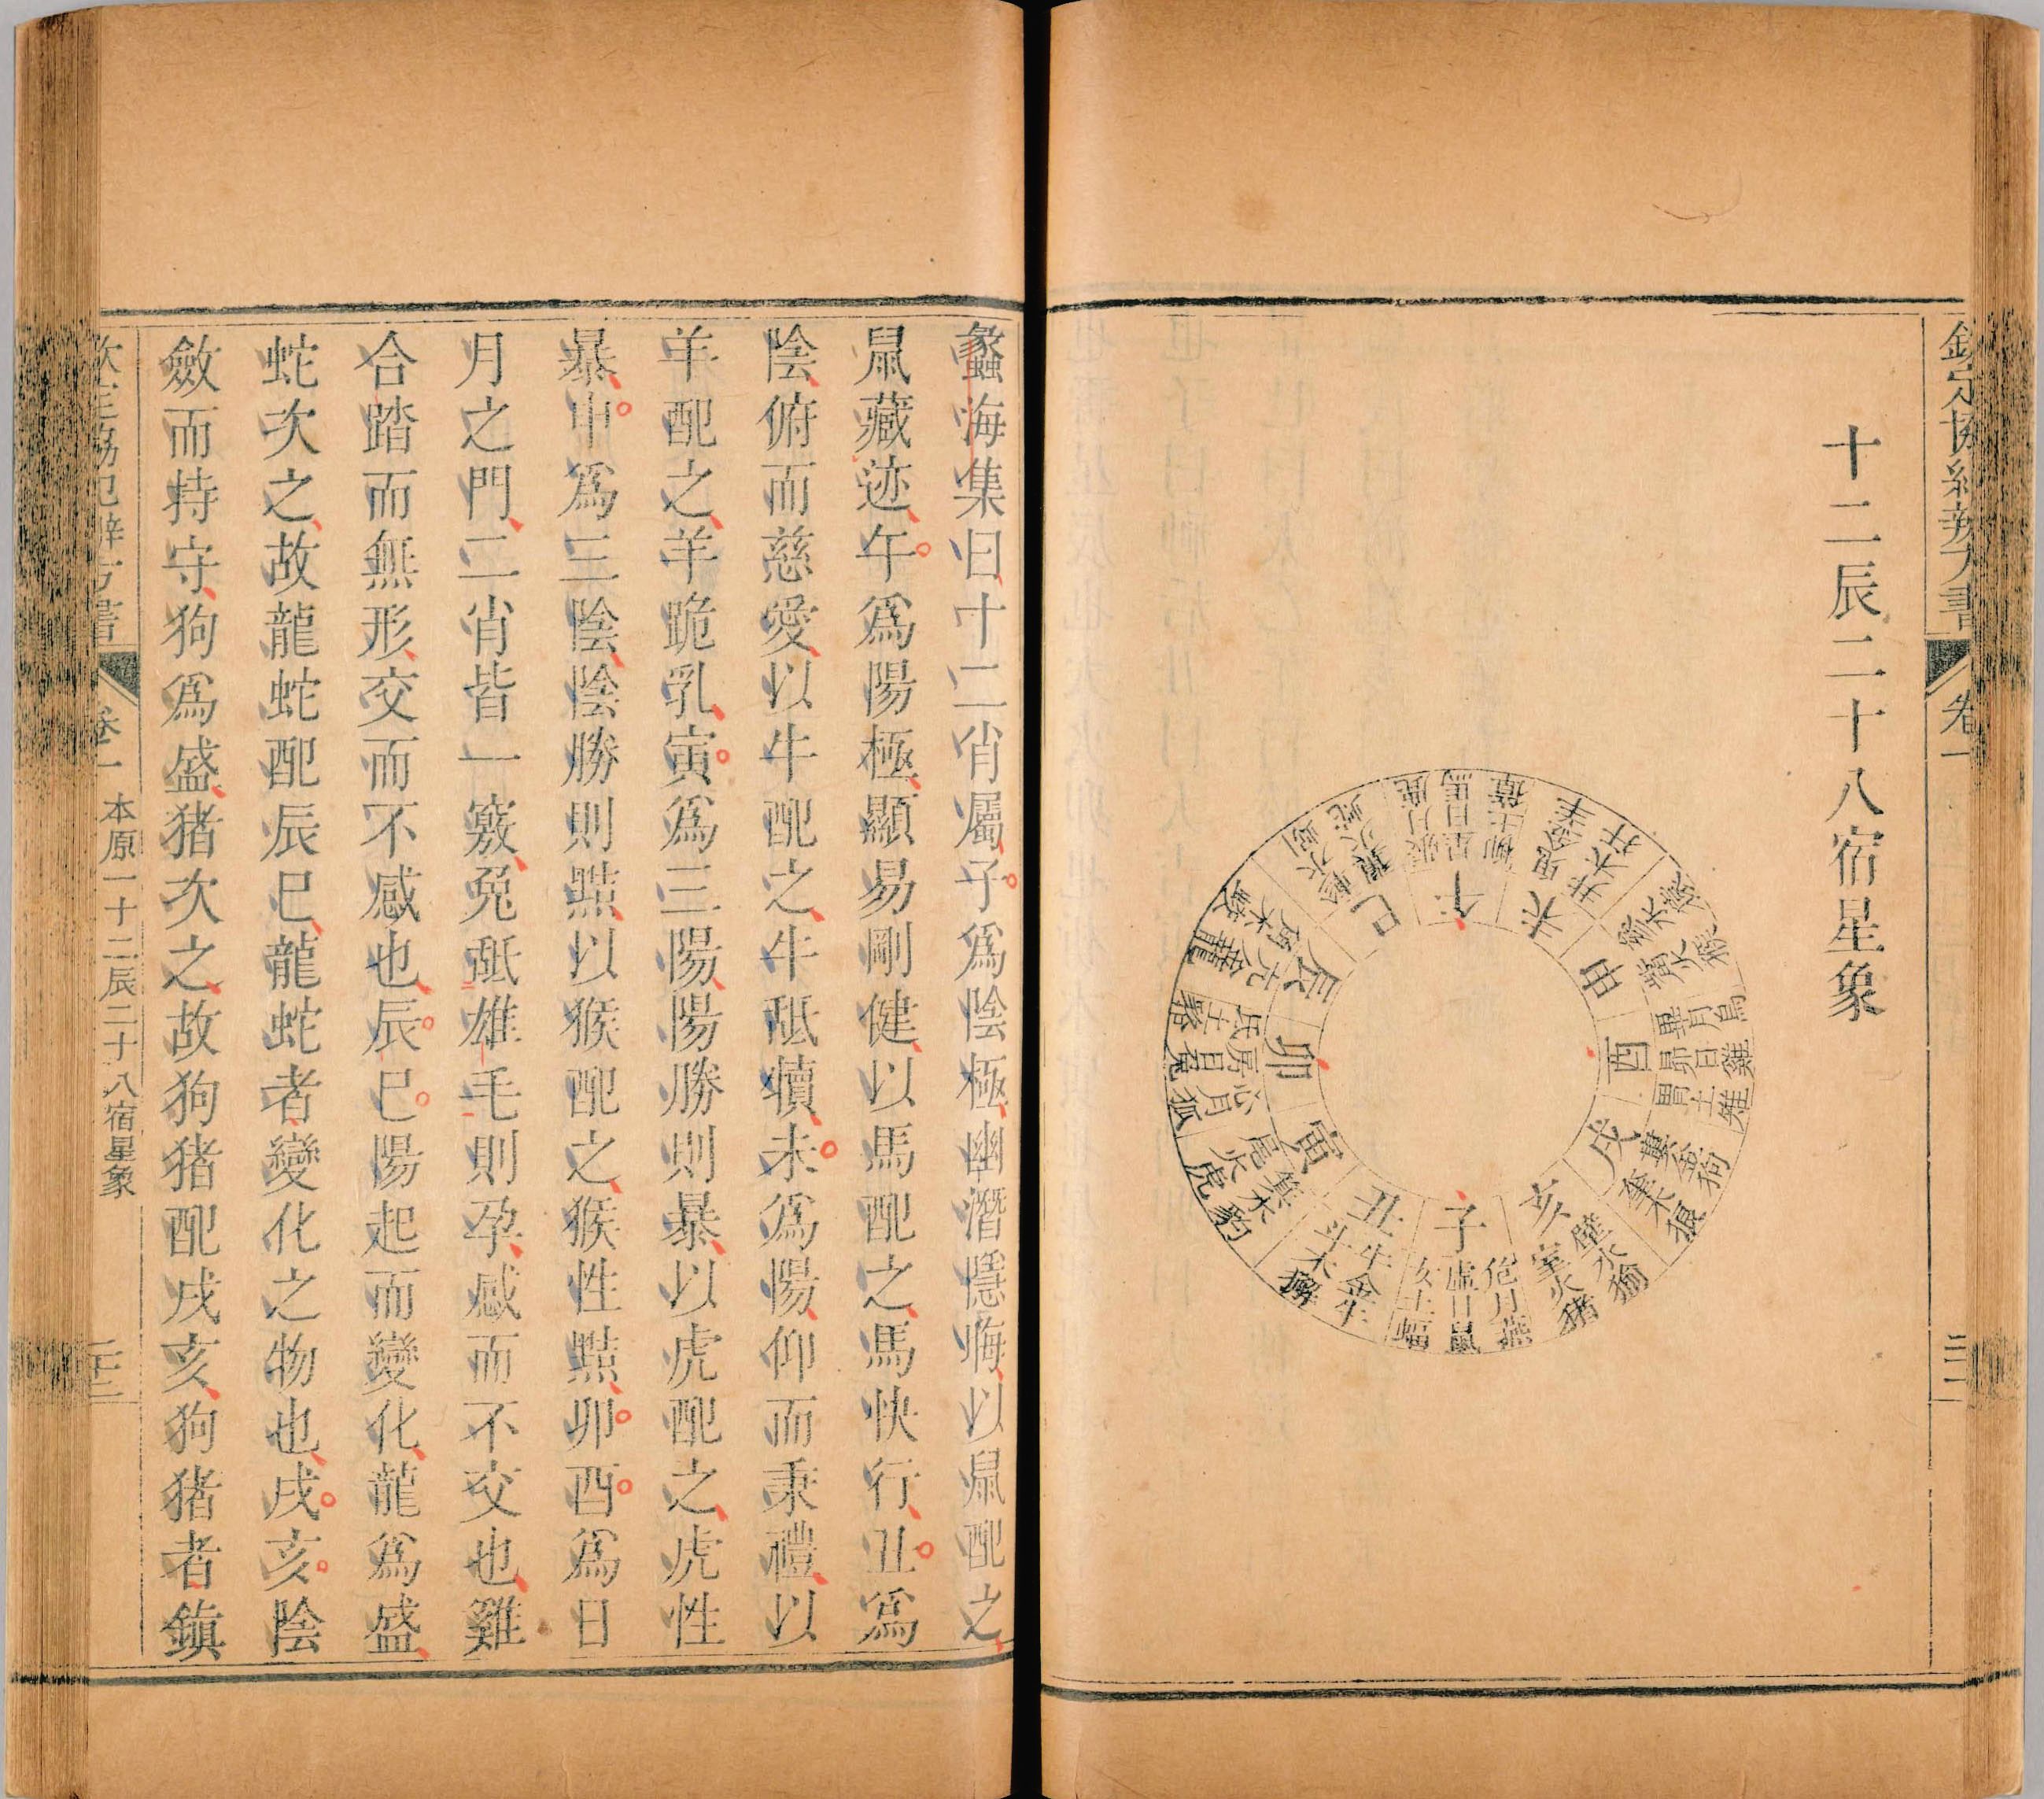 欽定協紀辨方書
卷一
十二辰二十八宿星象
午
柳土獐
星日馬
張月鹿
巳
翼火蛇
軫水蚓
辰
角木蛟
亢金龍
卯
氐土貉
房日兔
心月狐
寅
尾火虎
箕水豹
丑
斗木獬
牛金牛
子
女土蝠
虛日鼠
危月燕
亥
室火猪
壁水貐
戌
奎木狼
婁金狗
酉
胃土雉
昴日雞
畢月烏
申
觜火猴
參水猿
未
井木犴
鬼金羊
蠡海集曰十二肖屬子爲陰極幽潛隱晦以鼠配之
鼠藏迹午爲陽極顯易剛健以馬配之馬快行丑爲
陰俯而慈愛以牛配之牛舐犢未爲陽仰而秉禮以
羊配之羊跪乳寅爲三陽陽勝則暴以虎配之虎性
暴申爲三陰陰勝則黠以猴配之猴性黠卯酉爲日
月之門二肖皆一竅兔舐雄毛則孕感而不交也雞
合踏而無形交而不感也辰巳陽起而變化龍爲盛
蛇次之故龍蛇配辰巳龍蛇者變化之物也戌亥陰
斂而持守狗爲盛猪次之故狗猪配戌亥狗猪者鎮
欽定協紀辨方書
卷一
本原一十二辰二十八宿星象